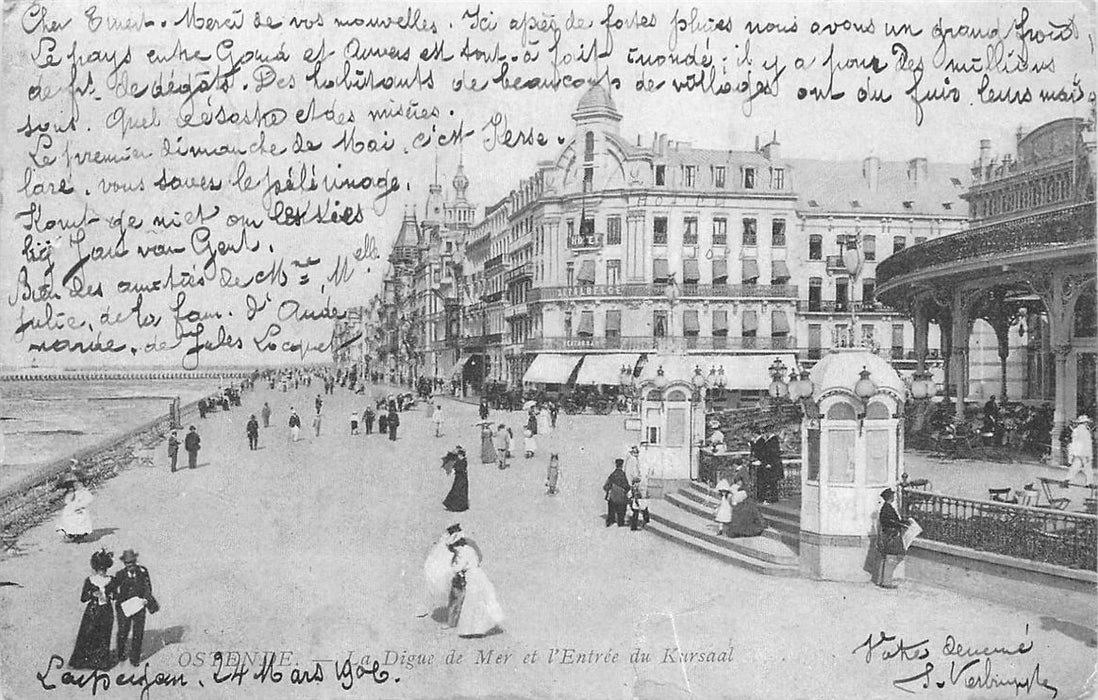 Cher Emert. Merci de vos nouvelles. Ici après de fortes pluies nous avons un grand froid.
Le pays entre Gand et Anvers est tout-à-fait inondé; il y a pour des millions
de fr. de dégâts. Des habitants de beaucoup de villages ont du fuir leurs mai
sons. Quel désastre et des misères.
Le premier dimanche de Mai, c'est Kerse
lare, vous savez le pélérinage.
Komt ge niet om
bij Jan van Gent.
Bien des amitiés de Mme, Melle
Julie, de la fam. d'Aude
narde, de Jules
HOTEL
OSTENDE. — La Digue de Mer et l'Entrée du Kursaal
24 Mars 1906.
Votre dévoué